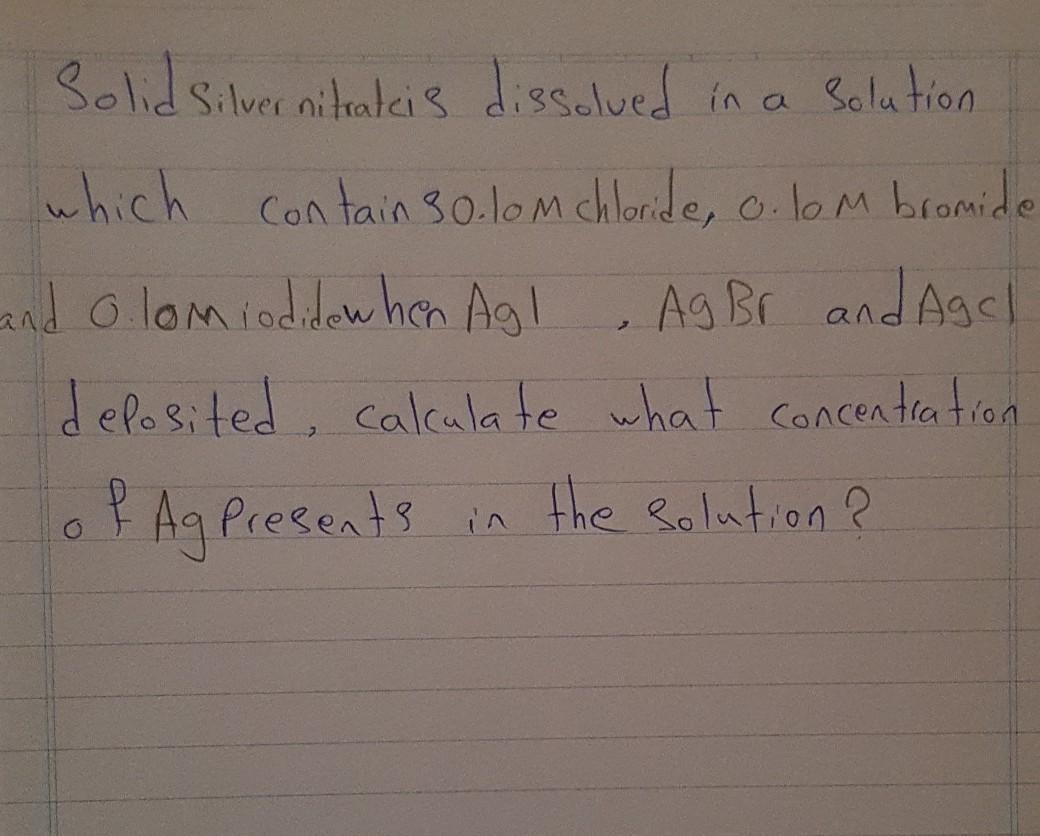 Solid Silver nitrateis dissolved in a Solution
which contains 0.10M chloride, 0.10M bromide
and 0.10M iodidewhen AgI , AgBr and Agcl
deposited, calculate what concentration
of Ag Presents in the Solution?